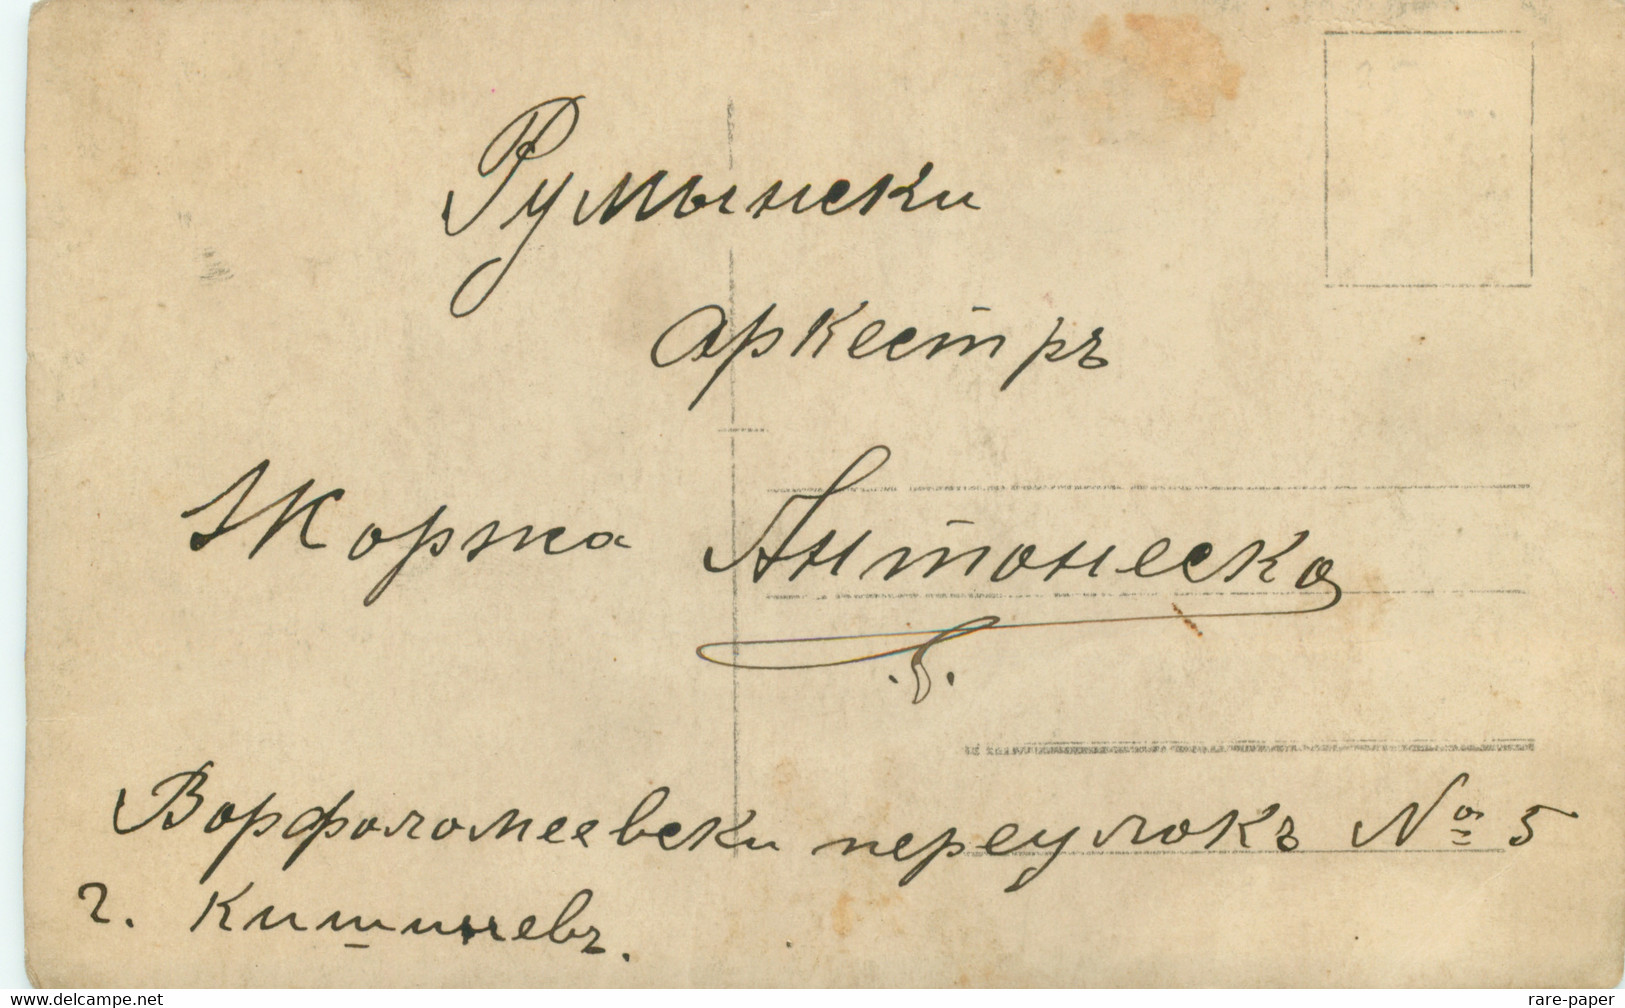 Румынски
аркестръ
Жоржа Антонеско
Ворфоломеевски переулокъ № 5
г. Кишиневъ.
delcampe.net
rare-paper